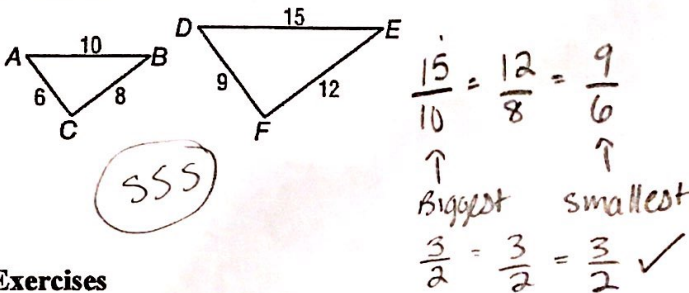 15
D E
10
A B
6 8
C
9 12
F
SSS
15/10 = 12/8 = 9/6
↑ ↑
Biggest smallest
3/2 = 3/2 = 3/2 ✓
Exercises